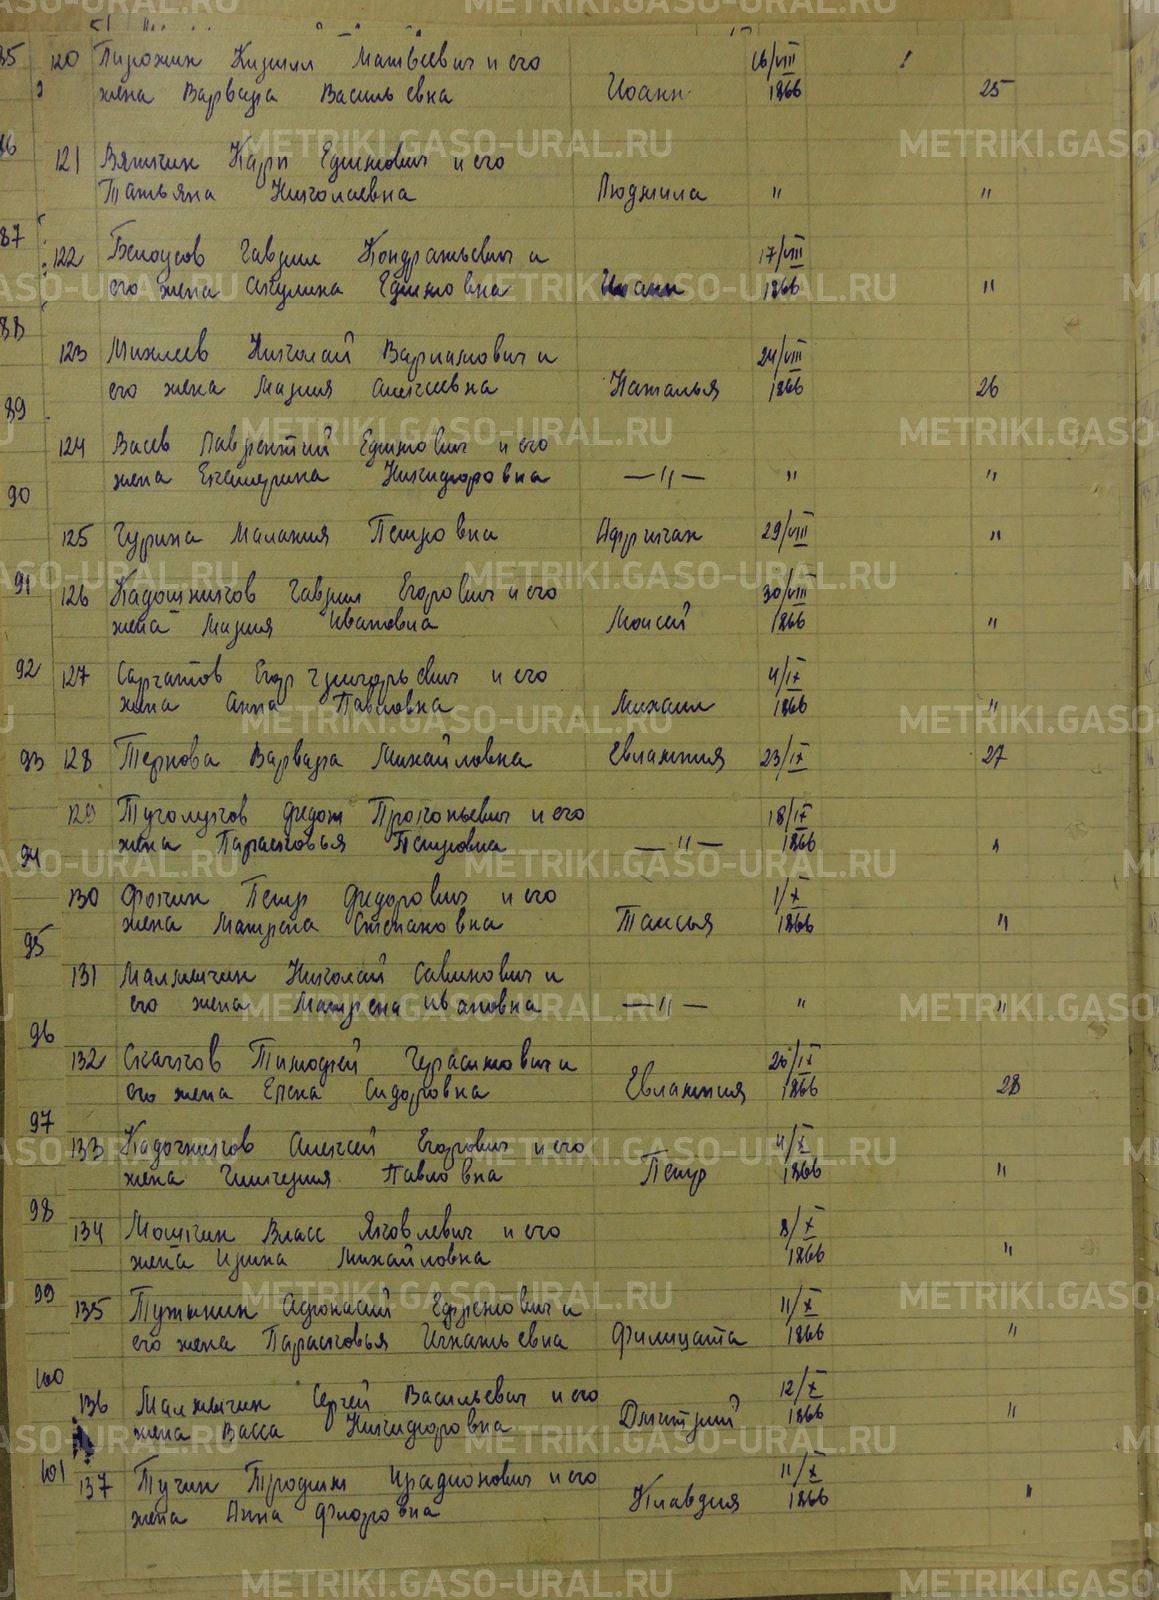 120 Пирожин Кирилл Матвеевич и его 16/VIII
жена Варвара Васильевна Иоанн 1866 25
121 Вяткин Карп Едимович и его
Татьяна Николаевна Людмила " "
87
122 Белоусов Гаврил Кондратьевич и 17/VIII
его жена Акулина Едимовна Иоанн 1866 "
88
123 Михлеев Николай Варламович и 24/VIII
его жена Мария Алексеевна Наталья 1866 26
89
124 Васев Лаврентий Едимович и его
жена Екатерина Никифоровна —"— " "
90
125 Гурина Малания Петровна Африкан 29/VIII "
91
126 Кадошников Гаврил Егорович и его 30/VIII
жена Мария Ивановна Моисей 1866 "
92 127 Сарчатов Егор Григорьевич и его 4/IX
жена Анна Павловна Михаил 1866 "
93 128 Тернова Варвара Михайловна Евлампия 23/IX 27
129 Туголуков Федот Прокопьевич и его 18/IX
94 жена Парасковья Петровна —"— 1866 "
130 Фокин Петр Федорович и его 1/X
жена Матрена Степановна Таисья 1866 "
95
131 Малмычкин Николай Савинович и
его жена Матрена Ивановна —"— " "
96
132 Скачков Тимофей Герасимович и 20/IX
его жена Елена Сидоровна Евлампия 1866 28
97
133 Кадочников Алексей Егорович и его 4/X
жена Гликерия Павловна Петр 1866 "
98
134 Мошкин Власс Яковлевич и его 8/X
жена Ирина Михайловна 1866 "
99
135 Тутынин Афонасий Ефремович и 11/X
его жена Парасковья Игнатьевна Филицата 1866 "
100
136 Малмыгин Сергей Васильевич и его 12/X
жена Васса Никифоровна Дмитрий 1866 "
101
137 Тучин Трофим Иродионович и его 11/X
жена Анна Флоровна Клавдия 1866 "
METRIKI.GASO-URAL.RU